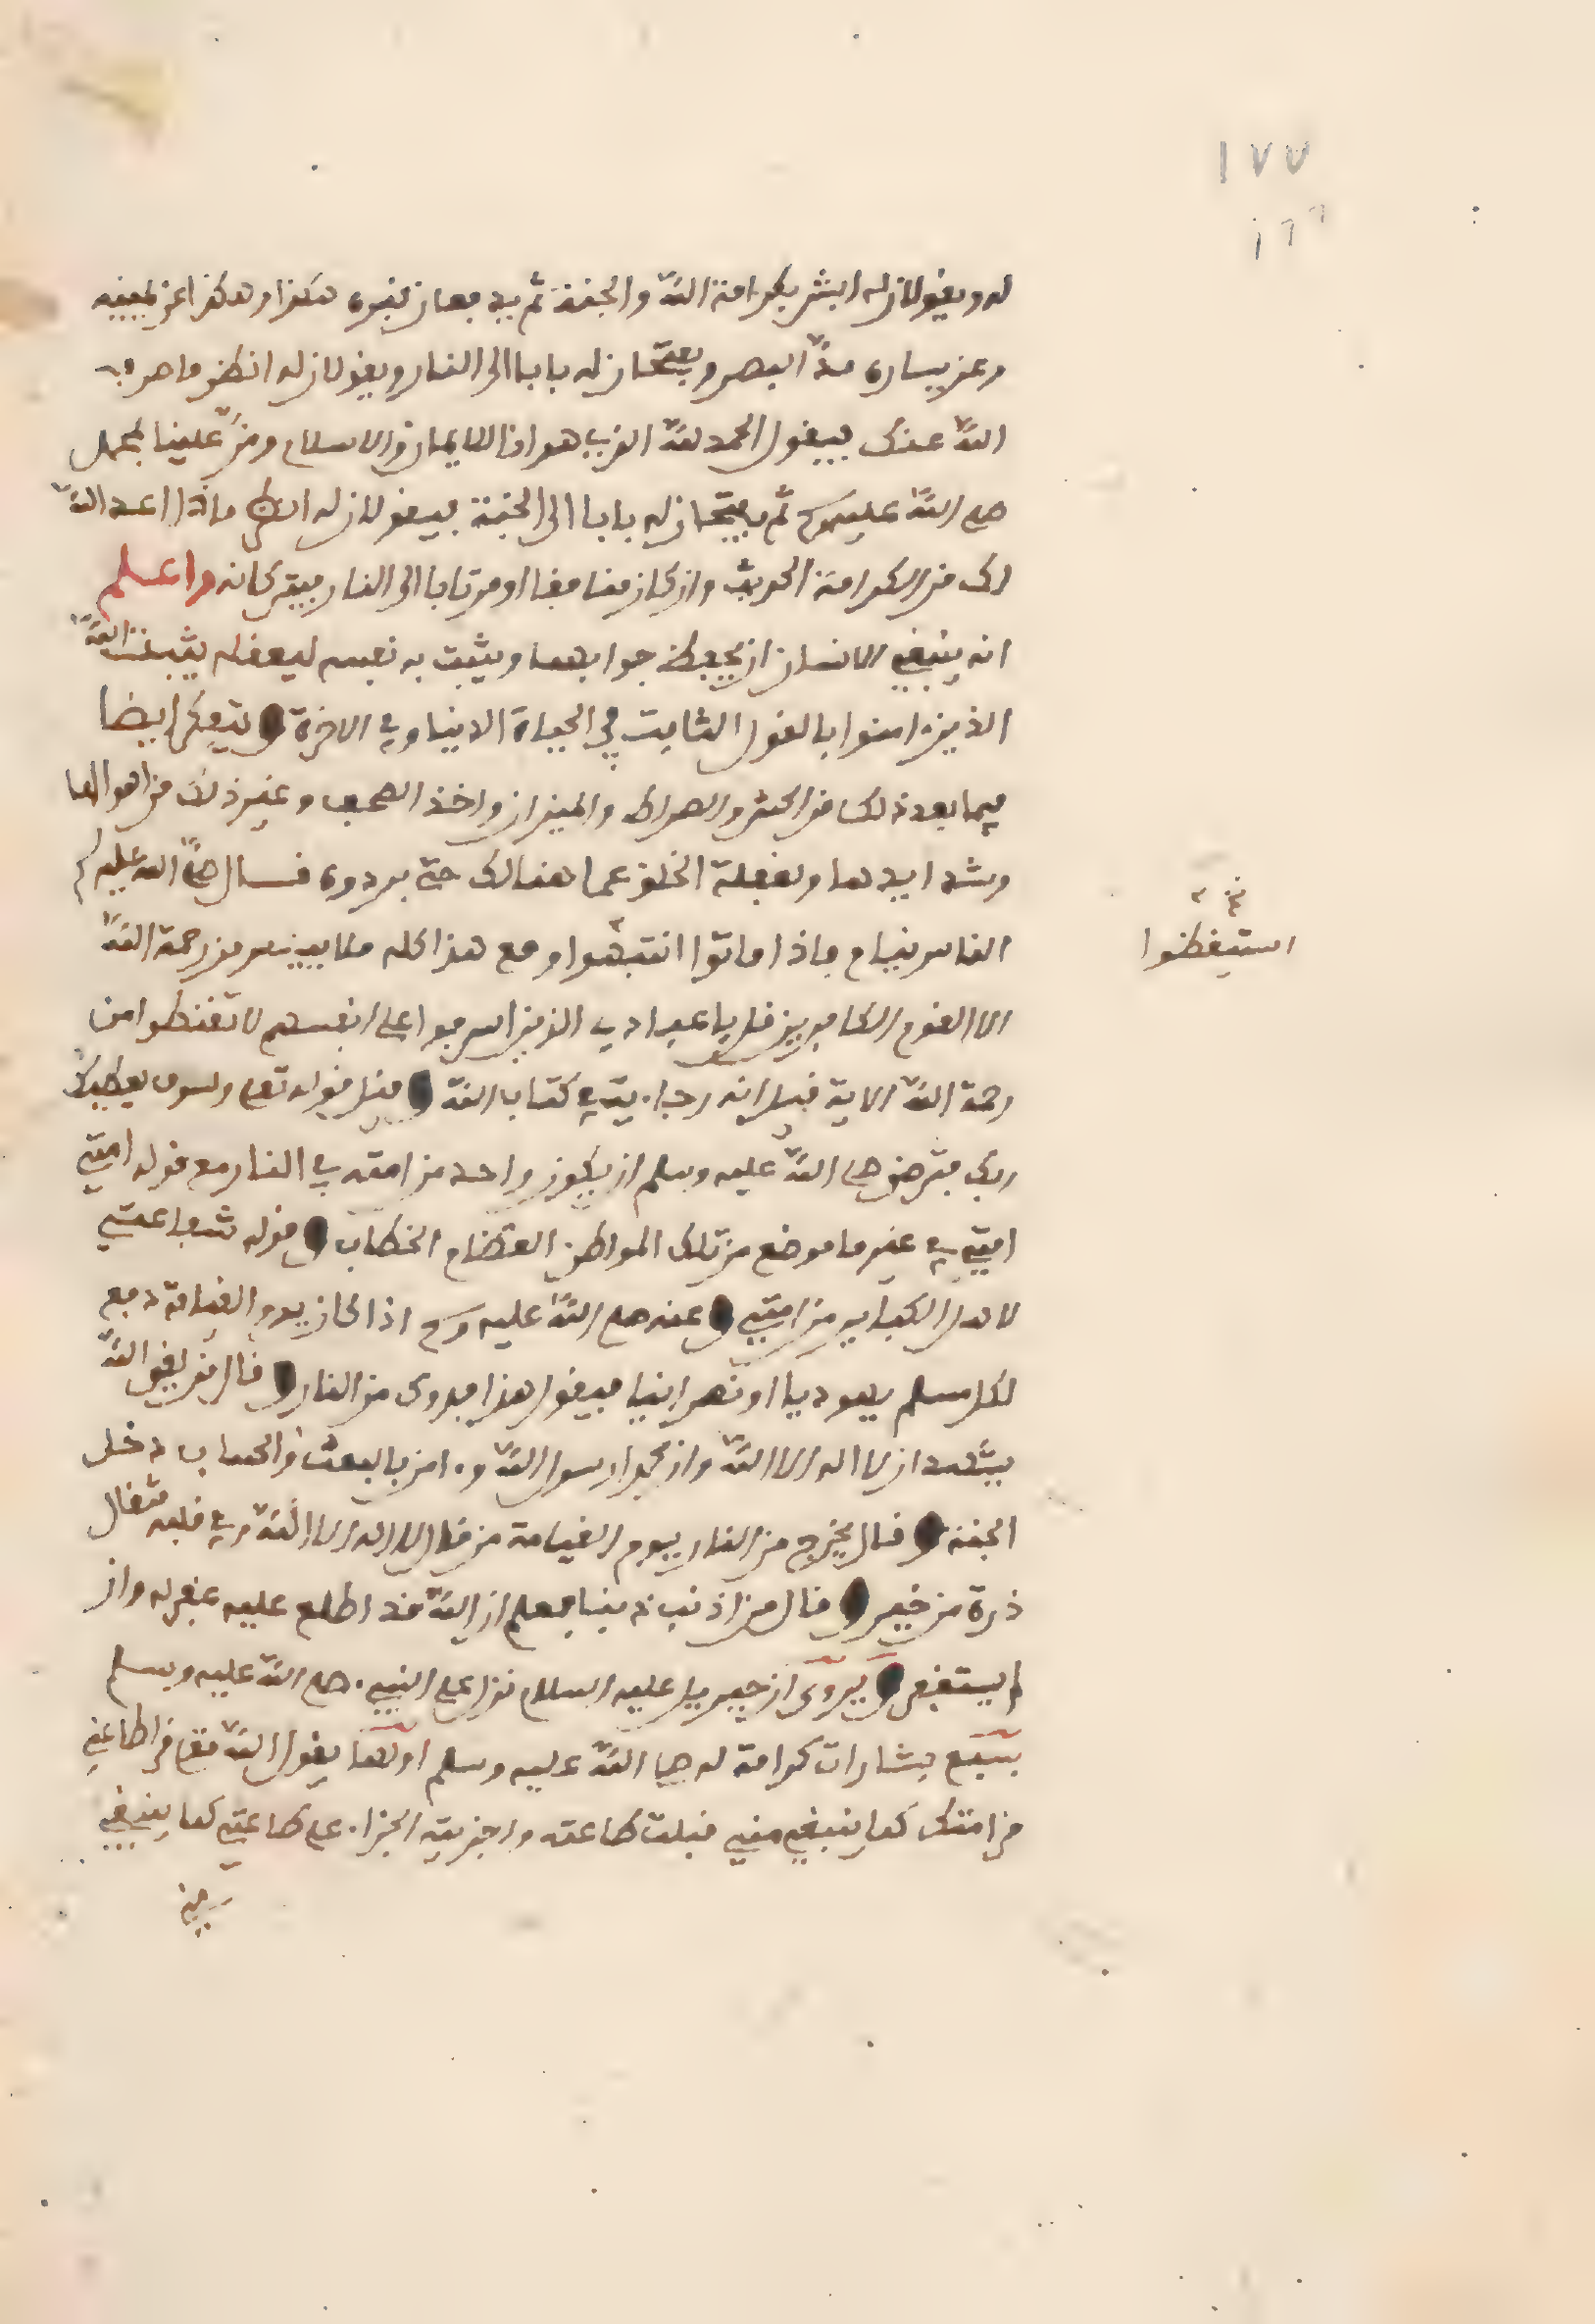 ١٧٧
١٦٦
له ويقولان له ابشر بكرامة الله والجنة ثم يدبعان قبره هكذا وهكذا عن يمينه
وعن يساره مد البصر ويفتحان له بابا الى النار ويقولان له انظر ما صرف
الله عنك فيقول الحمد لله الذي هدانا للايمان والاسلام ومن علينا بمحمد
صلى الله عليه وسلم ثم يفتحان له بابا الى الجنة فيقولان له انظر ماذا اعد الله
لك من الكرامة الحديث وان كان منافقا او مرتابا الى النار فيتركانه واعلم
انه ينبغي للانسان ان يحفظ جوابهما ويثبت به نفسه ليعقله يثبت الله
الذين امنوا بالقول الثابت في الحياة الدنيا وفي الاخرة ويتفكر ايضا
فيما بعد ذلك من الحشر والصراط والميزان واخذ الصحف وغير ذلك من اهوالها
وشدايدها وغفلة الخلق عما هنالك حتى يردوه قال صلى الله عليه وسلم
الناس نيام فاذا ماتوا انتبهوا ومع هذا كله فلا ييئس من رحمة الله
استيقظوا
الا القوم الكافرين قل يا عبادي الذين اسرفوا على انفسهم لا تقنطوا من
رحمة الله الاية قيل انه ارجا ءاية في كتاب الله وقيل قوله تعلى ولسوف يعطيك
ربك فترضى صلى الله عليه وسلم ان يكون واحد من امته في النار مع قوله امتي
امتي في غير ما موضع من تلك المواطن العظام الخطاب وقوله شفاعتي
لاهل الكباير من امتي وعنه صلى الله عليه وسلم اذا كان يوم القيامة دفع
لكل مسلم يهوديا او نصرانيا فيقول هذا فدوك من النار وقال من لقي الله
يشهد ان لا اله الا الله وان محمدا رسول الله وءامن بالبعث والحساب دخل
الجنة وقال يخرج من النار يوم القيامة من قال لا اله الا الله وفي قلبه مثقال
ذرة من خير وقال من اذنب ذنبا فعلم ان الله قد اطلع عليه غفر له وان
لم يستغفر ويروى ان جبريل عليه السلام نزل على النبي صلى الله عليه وسلم
بسبع بشارات كرامة له صلى الله عليه وسلم اولها يقول الله تعلى من اطاعني
من امتك كما ينبغي مني قبلت طاعته واجزيته الجزاء على طاعتي كما ينبغي